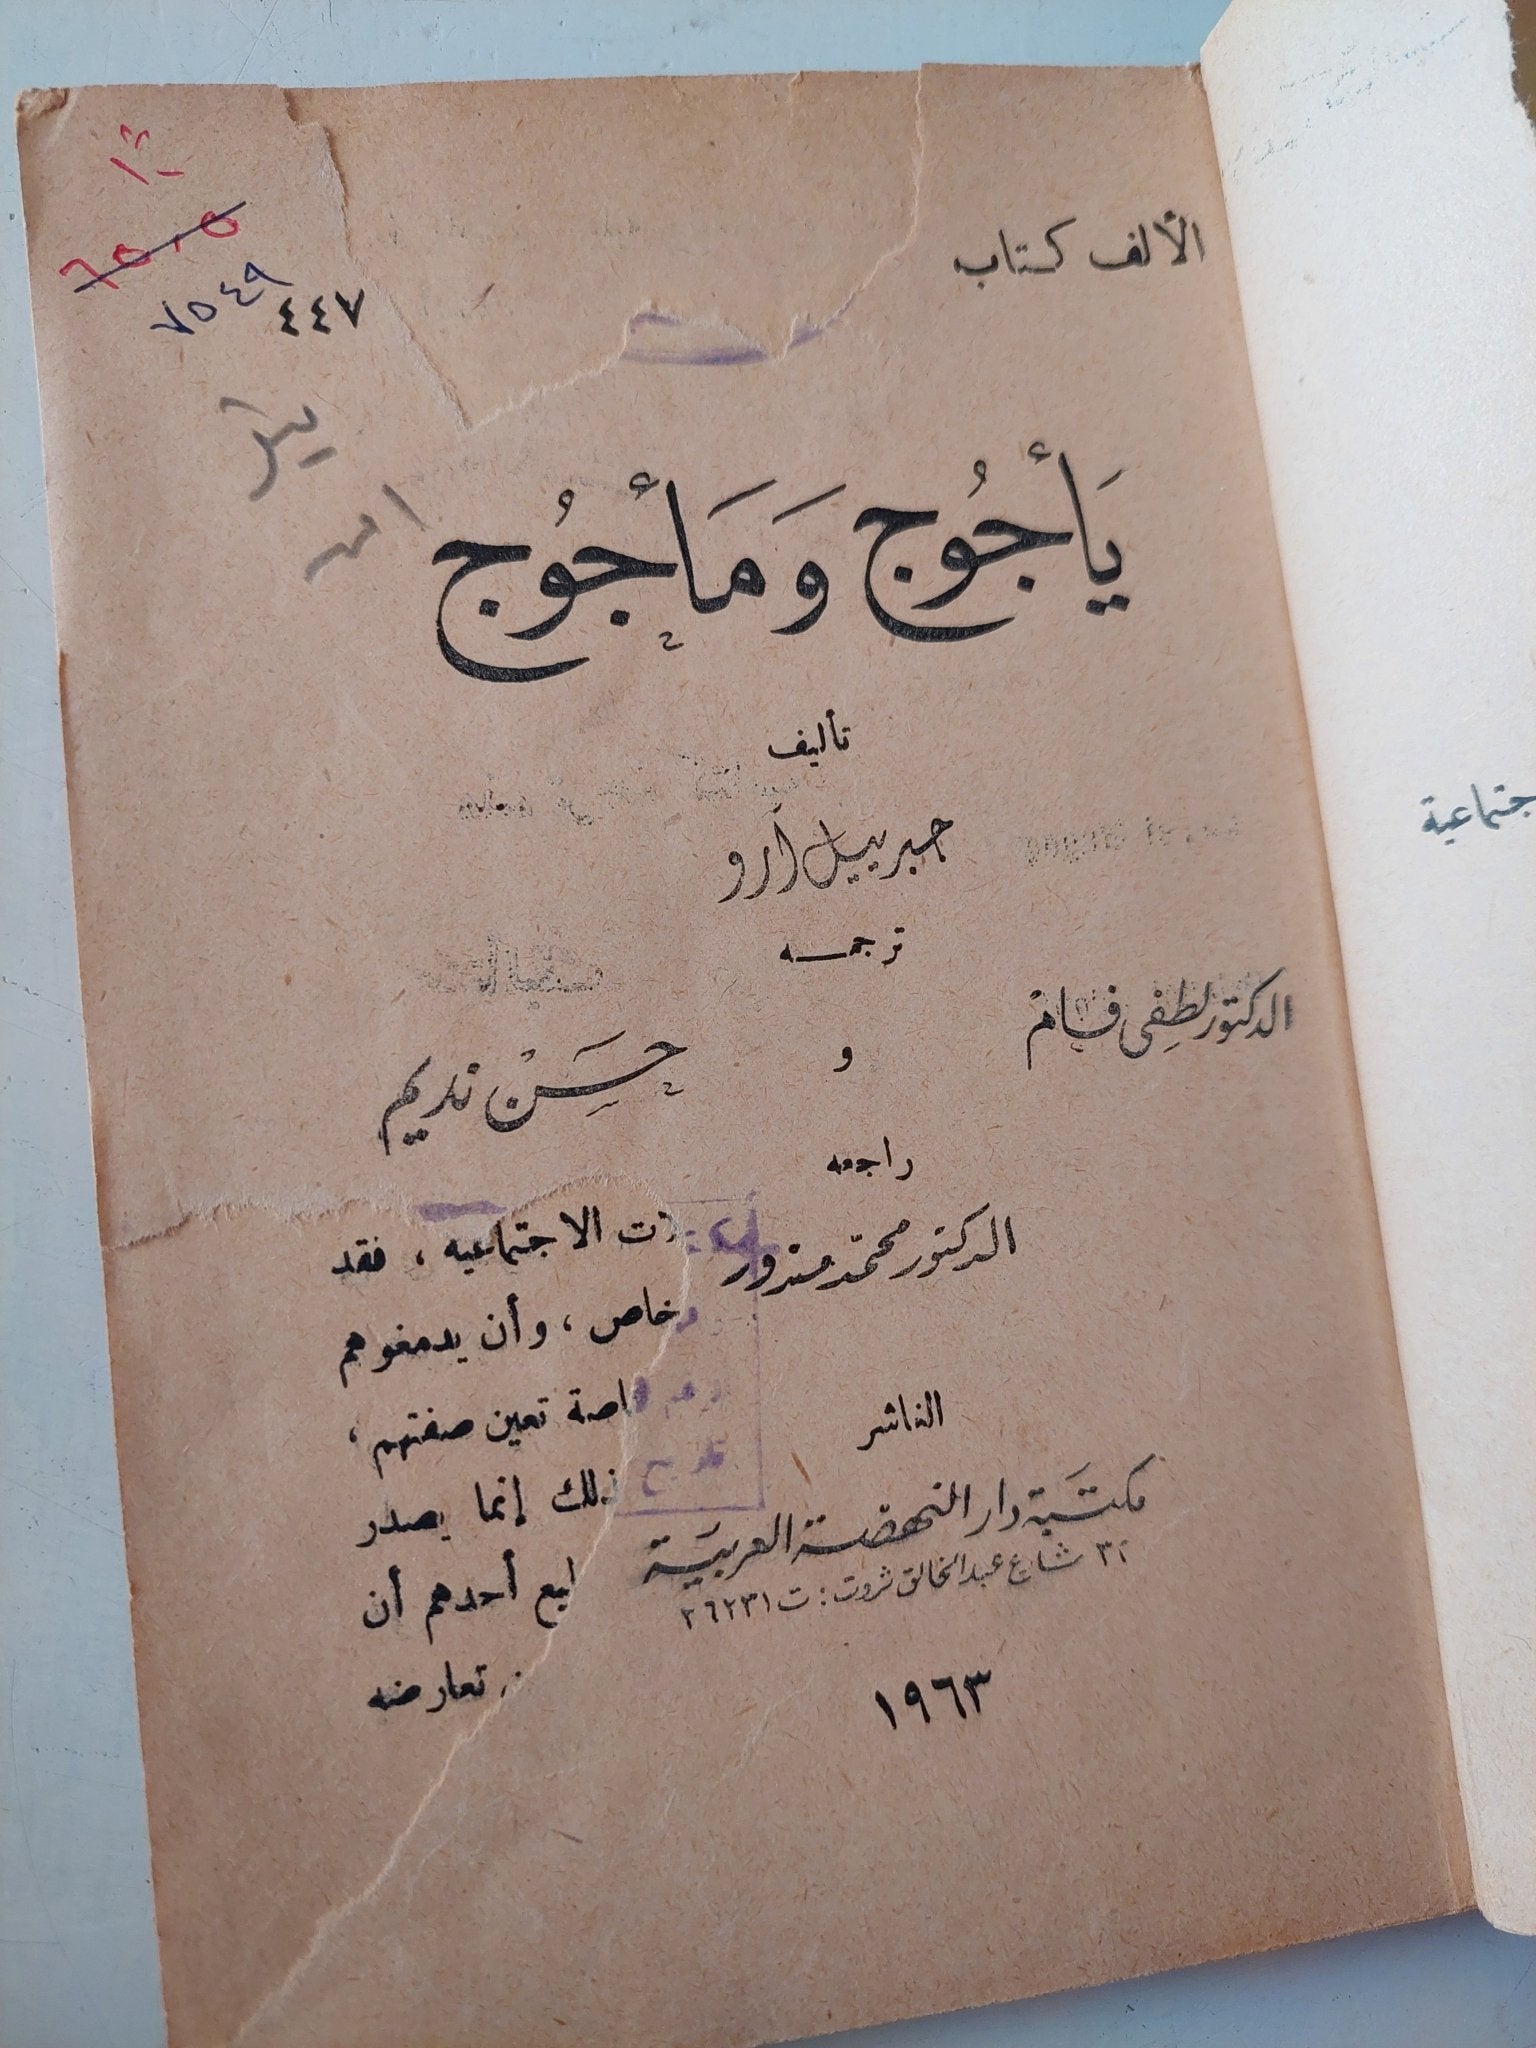 الألف كتاب
٤٤٧
٧٥٤٩
يَأْجُوج وَمَأْجُوج
تأليف
جبرييل آرو
ترجمه
الدكتور لطفى فام
و
حسن نديم
راجعه
الدكتور محمد مندور
الناشر
مكتبة دار النهضة العربية
٣٢ شارع عبد الخالق ثروت : ت ٢٦٢٣١
١٩٦٣
الاجتماعيه ، فقد
خاص ، وأن يدمغوهم
تعين صفتهم ،
ذلك إنما يصدر
أحدهم أن
تعارضه
جتماعية